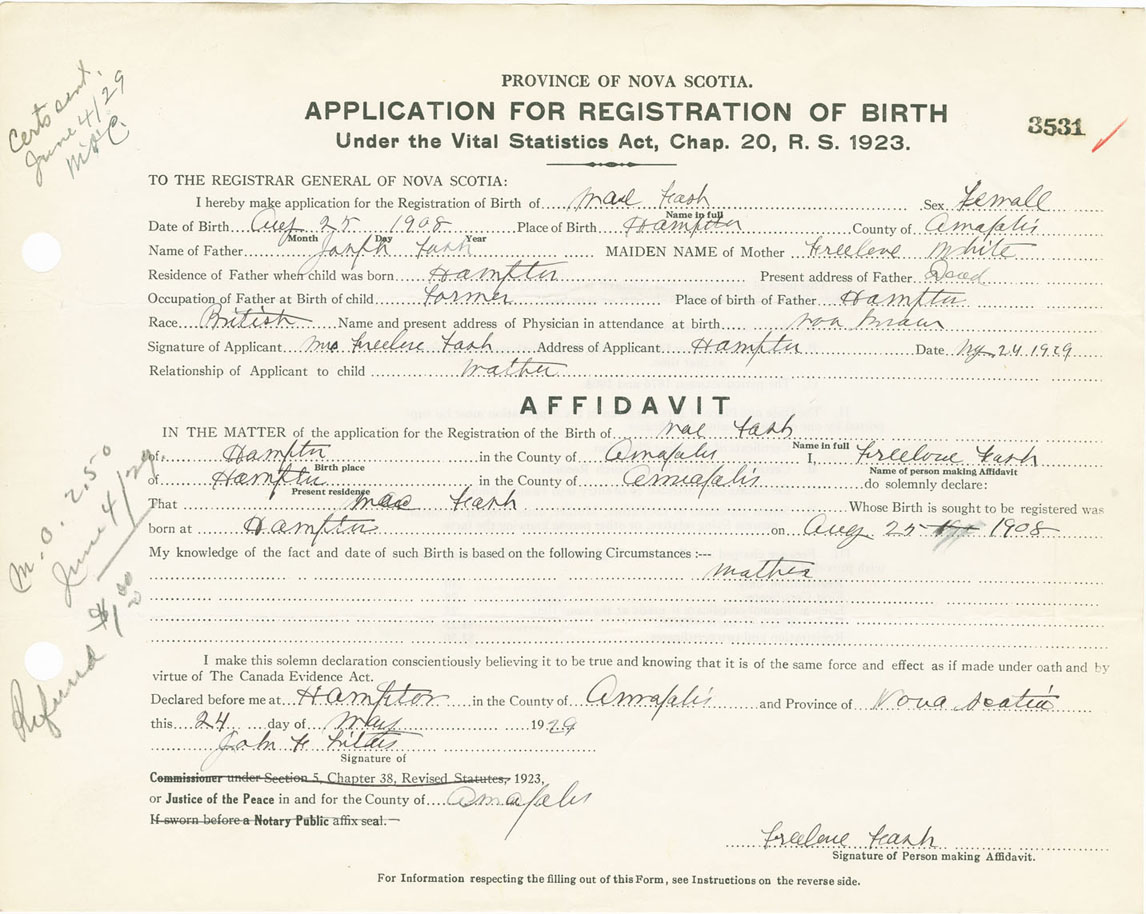 Certs sent.
June 4/29
M.A.C.
PROVINCE OF NOVA SCOTIA.
APPLICATION FOR REGISTRATION OF BIRTH
Under the Vital Statistics Act, Chap. 20, R. S. 1923.
3531
TO THE REGISTRAR GENERAL OF NOVA SCOTIA:
I hereby make application for the Registration of Birth of Mae Fash Sex Female
Name in full
Date of Birth Aug 25 1908 Place of Birth Hampton County of Annapolis
Month Day Year
Name of Father Joseph Fash MAIDEN NAME of Mother Freelove White
Residence of Father when child was born Hampton Present address of Father Dead
Occupation of Father at Birth of child Farmer Place of birth of Father Hampton
Race British Name and present address of Physician in attendance at birth
Signature of Applicant Mrs Freelove Fash Address of Applicant Hampton Date My 24 1929
Relationship of Applicant to child Mother
AFFIDAVIT
IN THE MATTER of the application for the Registration of the Birth of Mae Fash
Name in full
of Hampton in the County of Annapolis I, Freelove Fash
Birth place Name of person making Affidavit
of Hampton in the County of Annapolis do solemnly declare:
Present residence
That Mae Fash Whose Birth is sought to be registered was
born at Hampton on Aug. 25 1908
My knowledge of the fact and date of such Birth is based on the following Circumstances :---
Mother
M.O. 2.50
June 4/29
Refund $1.00
I make this solemn declaration conscientiously believing it to be true and knowing that it is of the same force and effect as if made under oath and by
virtue of The Canada Evidence Act.
Declared before me at Hampton in the County of Annapolis and Province of Nova Scotia
this 24 day of May 1929
John F
Signature of
Commissioner under Section 5, Chapter 38, Revised Statutes, 1923,
or Justice of the Peace in and for the County of Annapolis
If sworn before a Notary Public affix seal.
Freelove Fash
Signature of Person making Affidavit.
For Information respecting the filling out of this Form, see Instructions on the reverse side.